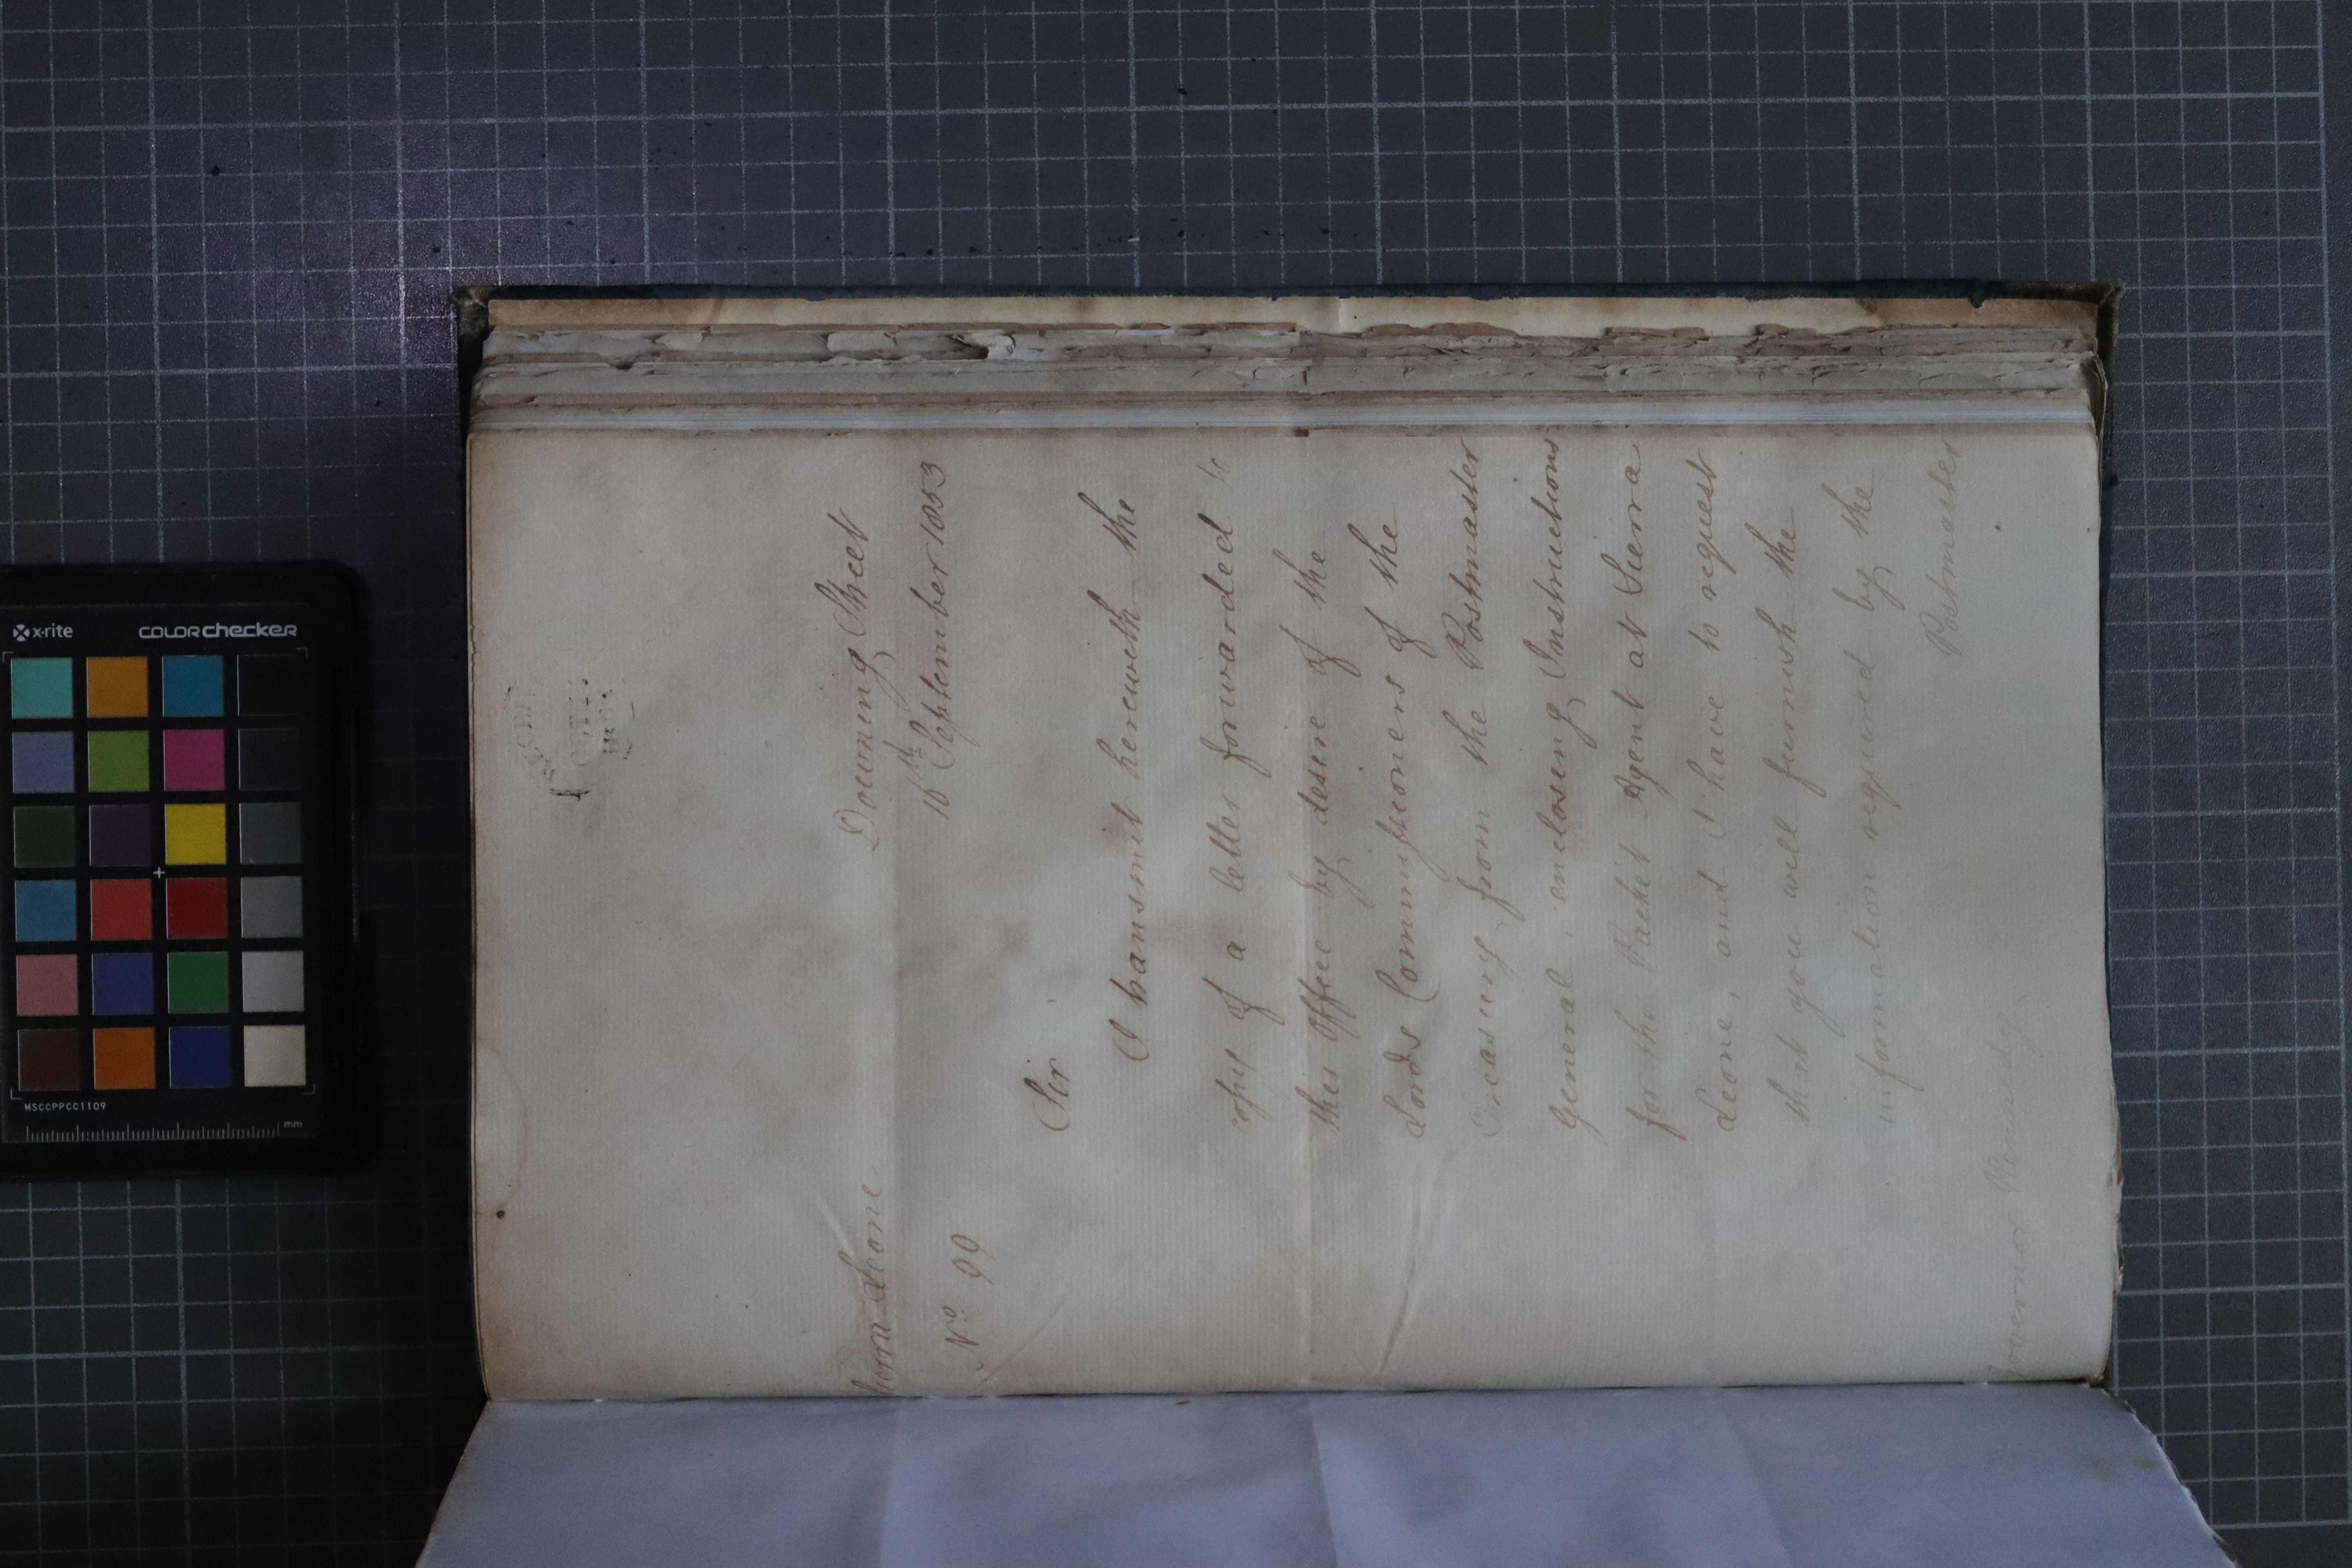 Sierra Leone
Downing Street
Nº. 99
16th September 1853
Sir
I transmit herewith the
copy of a letter forwarded to
this Office by desire of the
Lords Commissioners of the
Treasury, from the Postmaster
General, enclosing Instructions
for the Packet Agent at Sierra
Leone, and I have to request
that you will furnish the
information required by the
Postmaster
Governor Kennedy
x-rite
colorchecker
MSCCPPCC1109
mm